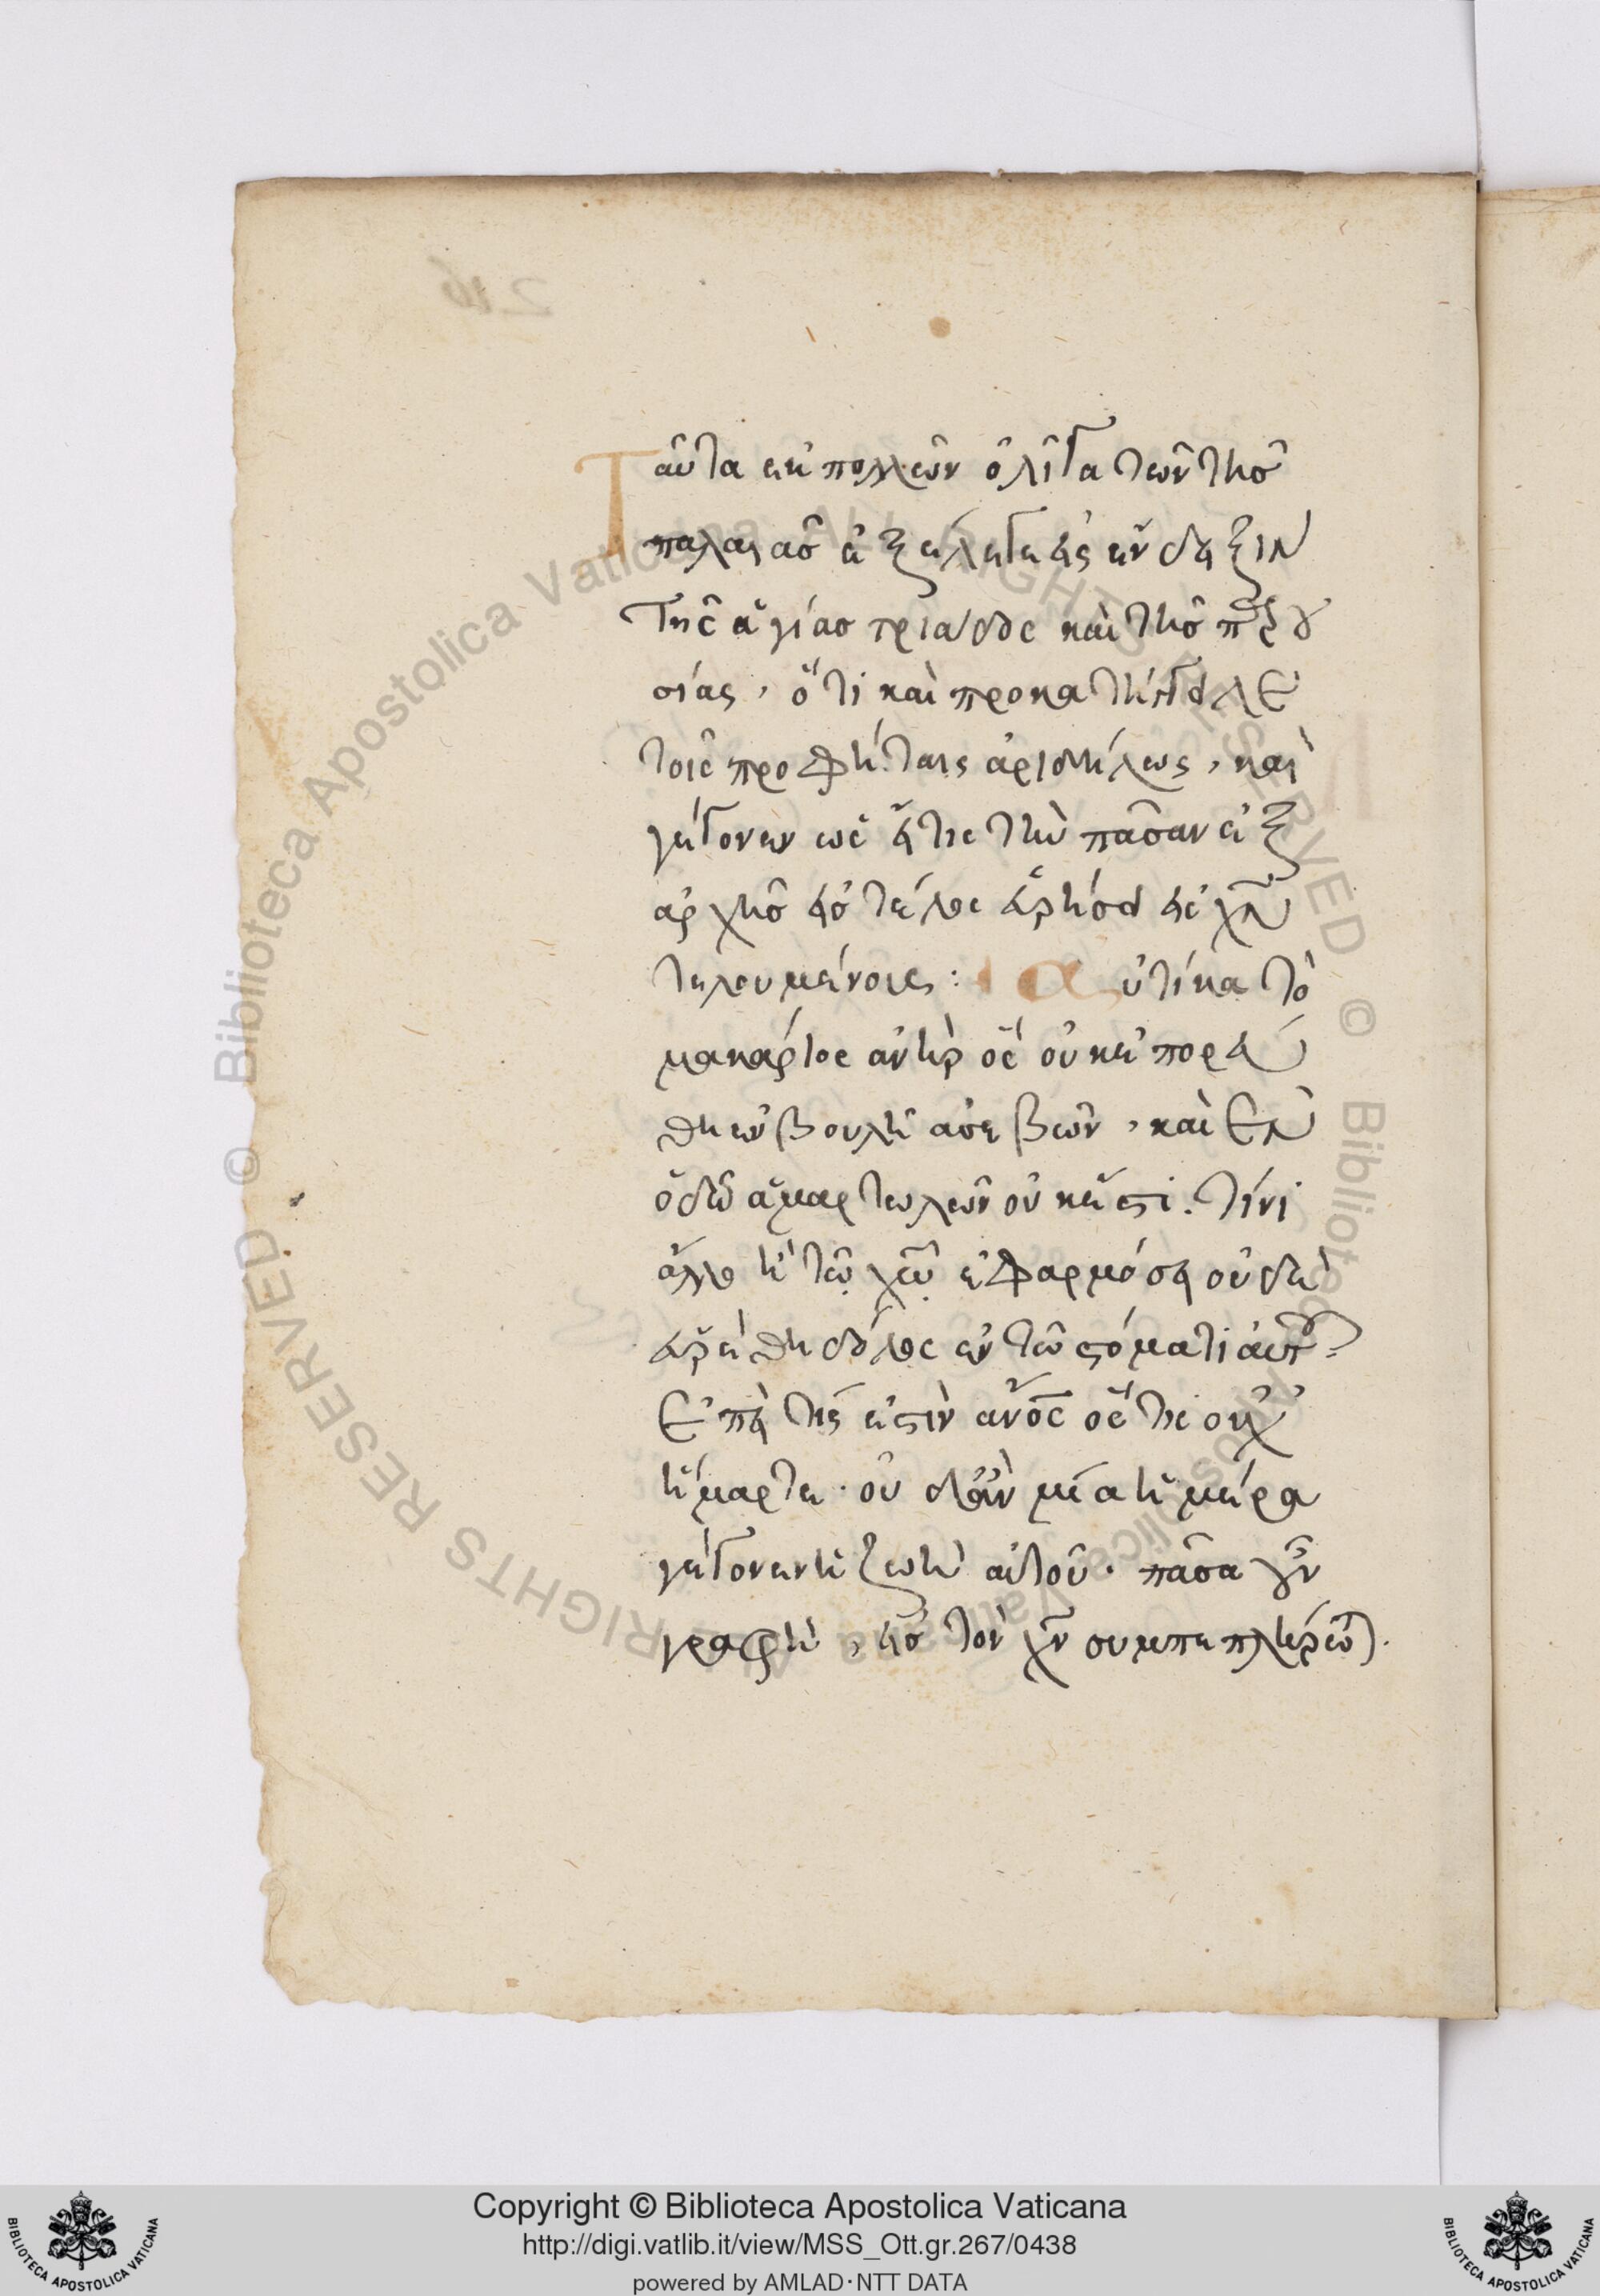 Ταῦτα ἐκ πολλῶν ὀλίγα τῶν τῆς
παλαιᾶς ἐξέλεγε εἰς ἔνδειξιν
τῆς ἁγίας τριάδος καὶ τῆς
σίας, ὅτι καὶ προκατήγγελε
τοῖς προφήταις ἀριδήλως, καὶ
γέγονεν ὡς εἴ τις τὴν πᾶσαν ἐξ
ἀρχῆς εἰς τέλος εἰς χν
τελουμένοις: αὐτίκα τὸ
μακάριος ἀνὴρ ὃς οὐκ ἐπορεύ
θη ἐν βουλῇ ἀσεβῶν, καὶ ἐν
ὁδῷ ἁμαρτωλῶν οὐκ ἔστι. τίνι
ἄλλο ἢ τῷ χῶ ἐφαρμόσει οὐδὲ
εὑρέθη δόλος ἐν τῷ στόματι αὐτοῦ.
ἐπεὶ τίς ἐστὶν ἀνος ὅς τις οὐχ
ἥμαρτε. οὐδ' ἂν μία ἡμέρα
γέγονεν ἡ ζωὴ αὐτοῦ. πᾶσα γοῦν
γραφὴ, εἰς τὸν χν συμπεπλήρωται.
Copyright © Biblioteca Apostolica Vaticana
http://digi.vatlib.it/view/MSS_Ott.gr.267/0438
powered by AMLAD·NTT DATA
BIBLIOTECA APOSTOLICA VATICANA
BIBLIOTECA APOSTOLICA VATICANA